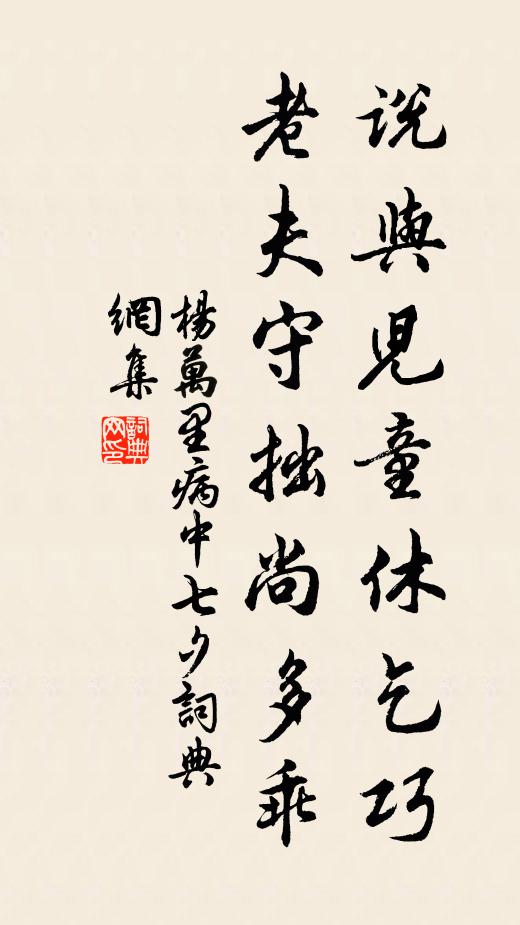 説與兒童休乞巧
老夫守拙尚多乖
楊萬里病中七夕詞典
網集
詞典
网印